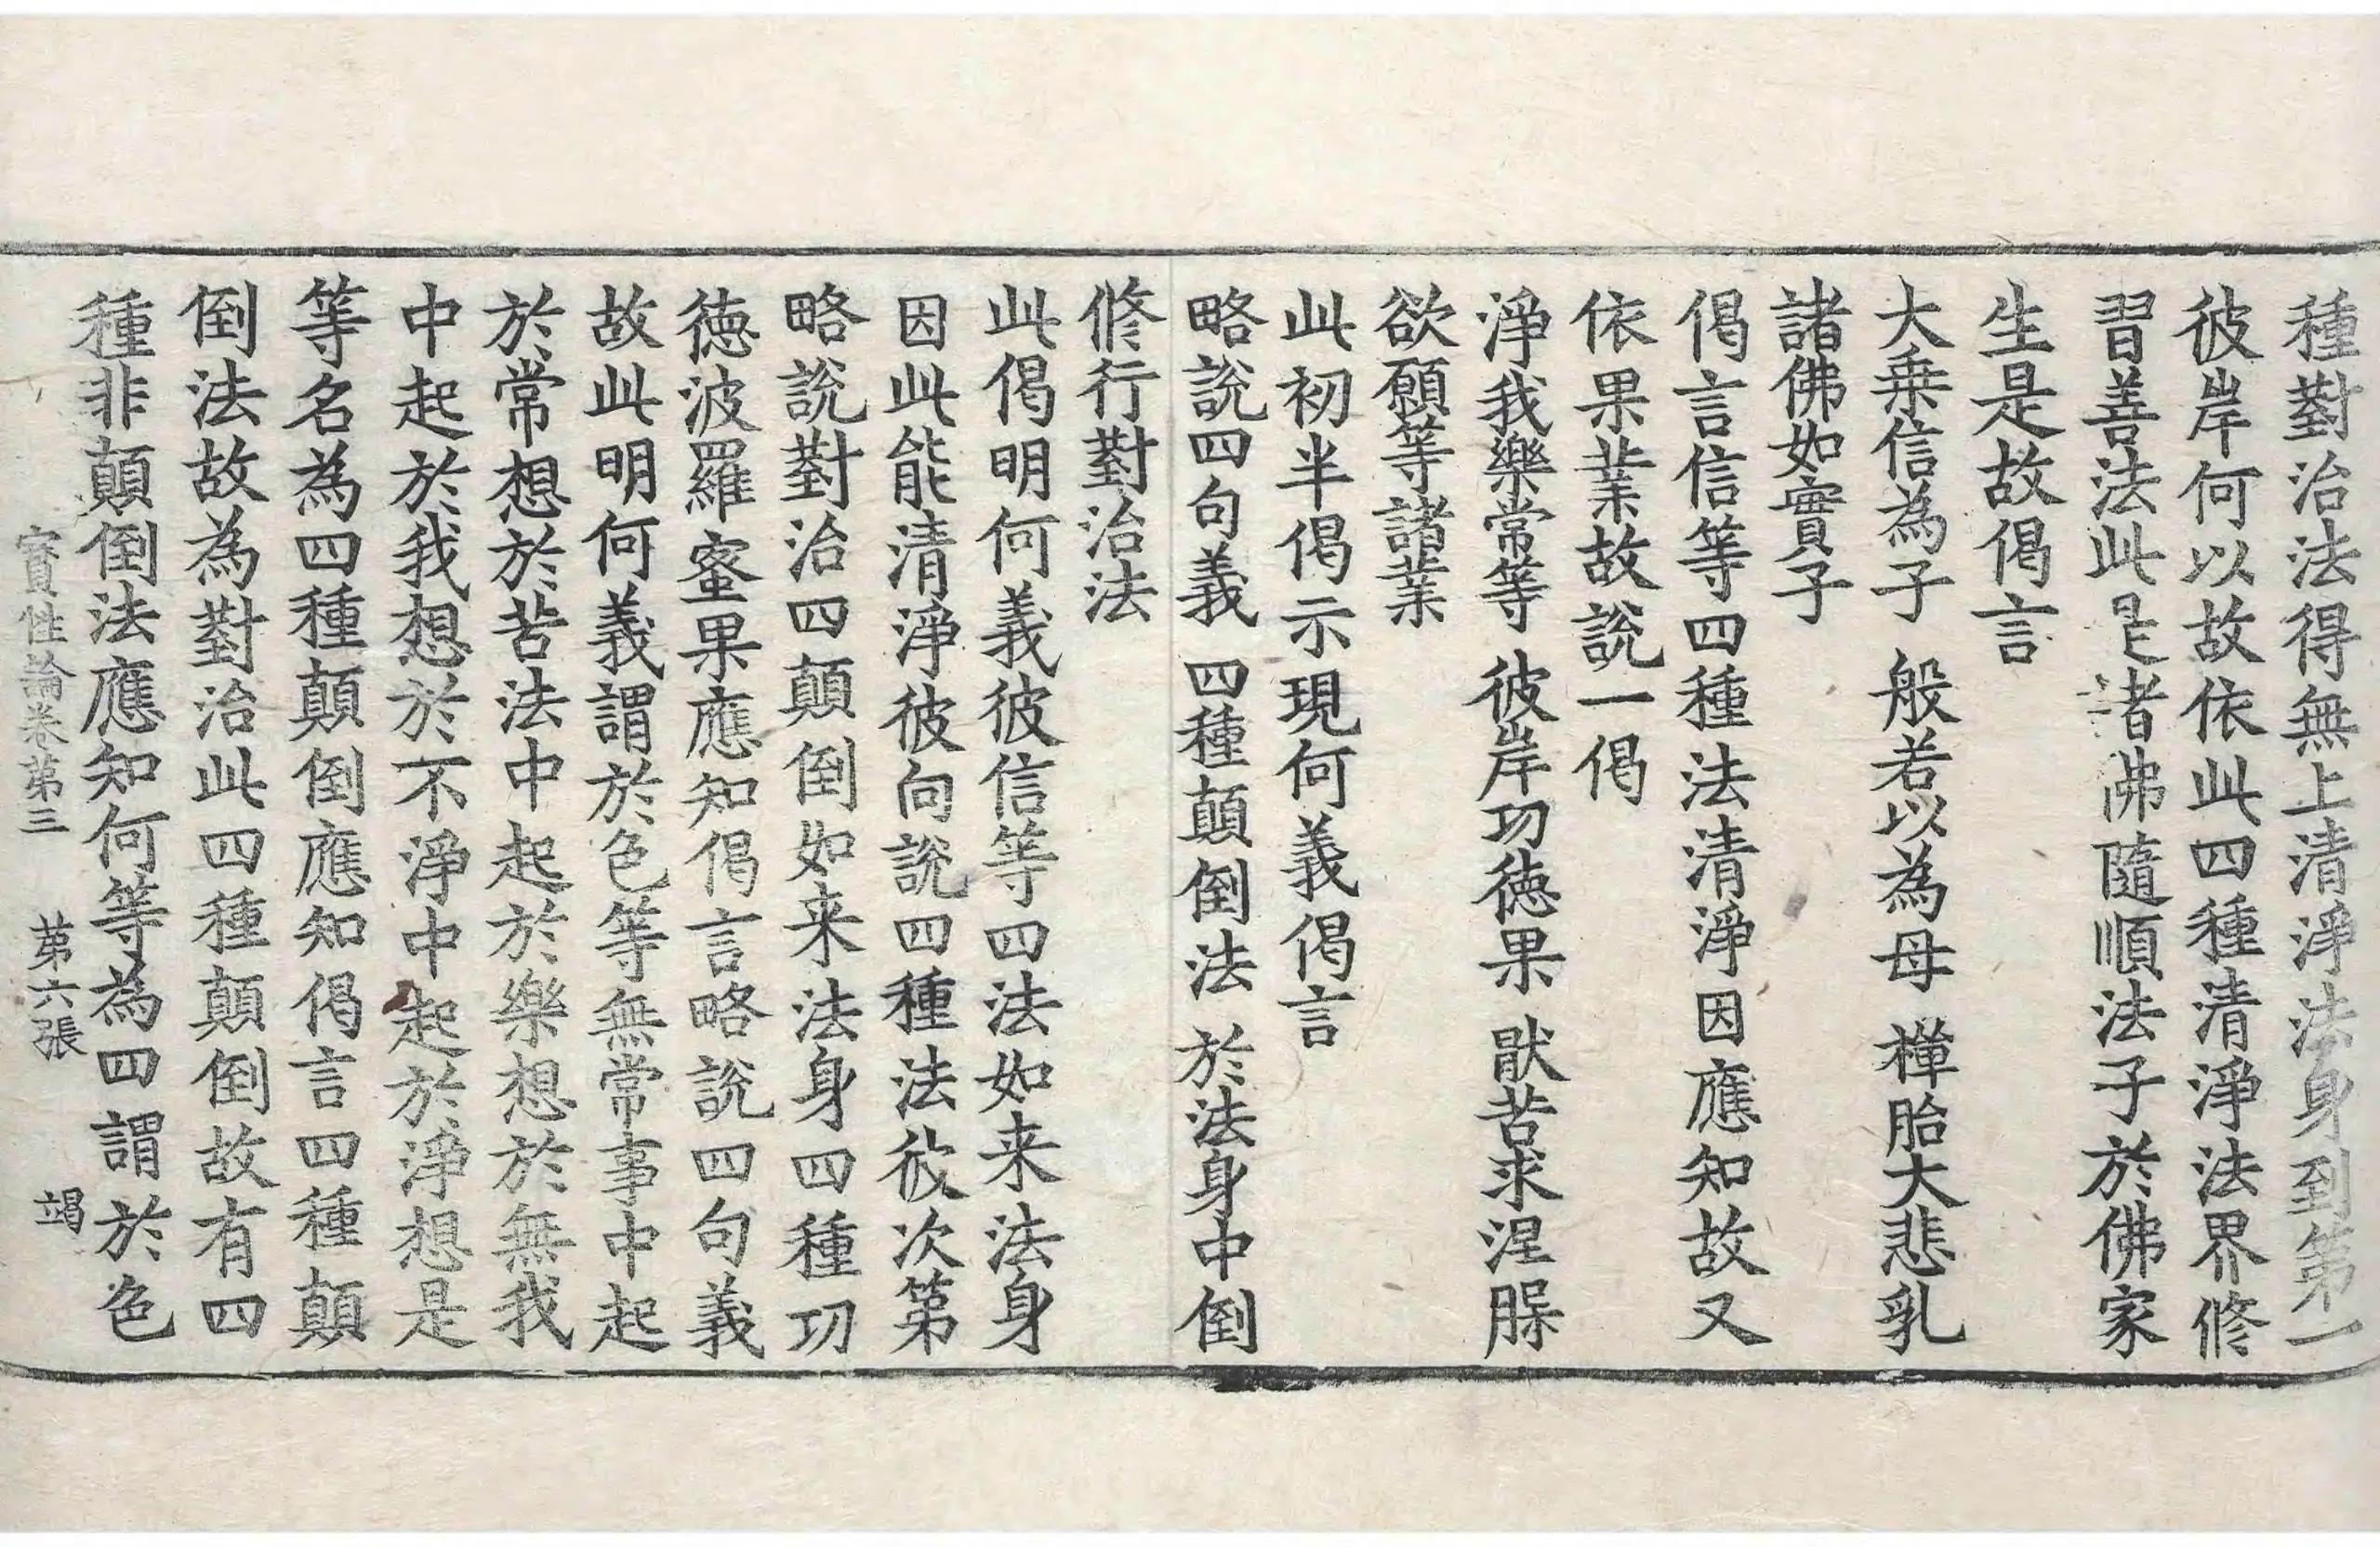 種對治法得無上清淨法身到第一
彼岸何以故依此四種清淨法界修
習善法此是諸佛隨順法子於佛家
生是故偈言
大乘信為子　般若以為母　禪胎大悲乳
諸佛如實子
偈言信等四種法清淨因應知故又
依果業故說一偈
淨我樂常等　彼岸功德果　猒苦求涅槃
欲願等諸業
此初半偈示現何義偈言
略說四句義　四種顛倒法　於法身中倒
修行對治法
此偈明何義彼信等四法如来法身
因此能清淨彼向說四種法彼次第
略說對治四顛倒如来法身四種功
德波羅蜜果應知偈言略說四句義
故此明何義謂於色等無常事中起
於常想於苦法中起於樂想於無我
中起於我想於不淨中起於淨想是
等名為四種顛倒應知偈言四種顛
倒法故為對治此四種顛倒故有四
種非顛倒法應知何等為四謂於色
寶性論卷第三　第六張　竭